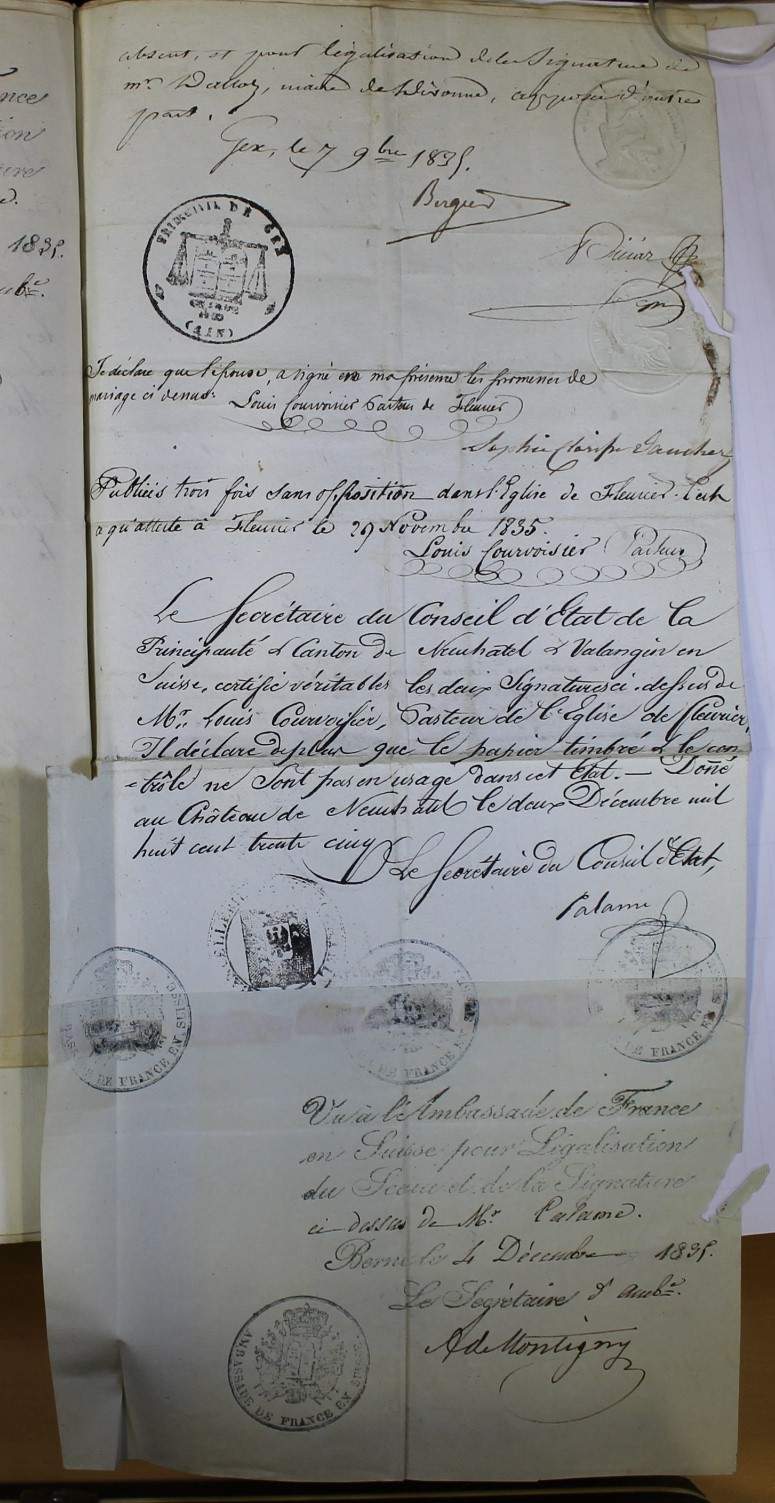 nce
ion
ture
1835.
mbe.
absent, et pour légalisation de la Signature de
mr. Dalloz, maire de Divonne, apposée d'autre
part.
Gex, le 7 9bre 1835.
TRIBUNAL DE GEX
(AIN)
Je déclare que l'épouse, a signé en ma présence les promesses de
mariage ci dessus. Louis Courvoisier Pasteur de Fleurier
Sophie Clarisse
Publiés trois fois sans opposition dans l'Eglise de Fleurier. C'est
a qu'atteste à Fleurier le 29 Novembre 1835.
Louis Courvoisier Pasteur
Le Secrétaire du Conseil d'Etat de la
Principauté & Canton de Neuchatel & Valangin en
Suisse, certifie véritables les deux Signatures ci-dessus de
Mr. Louis Courvoisier, Pasteur de l'Eglise de Fleurier,
Il déclare deplus que le papier timbré & le con
=trôle ne Sont pas en usage dans cet Etat. — Doñé
au Château de Neuchatel le deux Décembre mil
huit cent trente cinq
Le Secrétaire du Conseil d'Etat,
Calame
DE FRANCE EN SUISSE
DE FRANCE EN
DE FRANCE EN SU
Vu à l'Ambassade de France
en Suisse pour Légalisation
du Sceau et de la Signature
ci dessus de Mr. Calame.
Berne le 4 Décembre 1835.
Le Secrétaire d'ambe.
A de Montigny
AMBASSADE DE FRANCE EN SUISSE